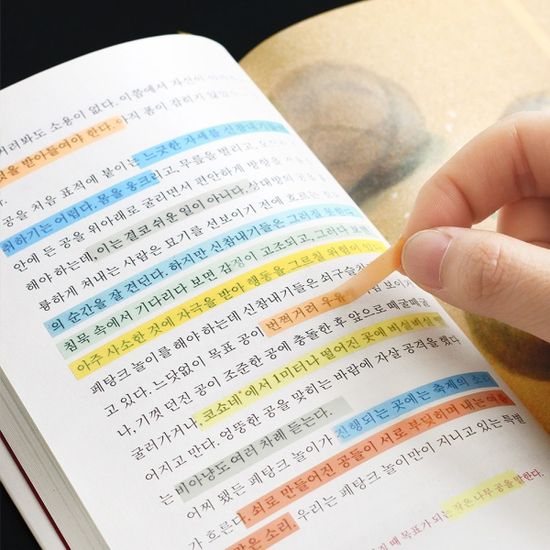 거리봐도 소용이 없다. 이쯤에서 자신이
것을 받아들여야 한다. 아직 폼이 잡히지 않았
공을 처음 표적에 붙이는 느긋한 자세를 신참내기들은
취하기는 어렵다. 몸을 웅크리고, 무릎을 벌리고,
안에 든 공을 위아래로 굴리면서 편안하게 방향을
해야 하는데, 이는 결코 쉬운 일이 아니다. 상대방의 공을
륭하게 쳐내는 사람은 묘기를 선보이기 전에 흐르는
의 순간을 잘 견딘다. 하지만 신참내기들은 그러질 못한다.
침묵 속에서 기다리다 보면 감정이 고조되고, 그러다 보면
아주 사소한 것에 자극을 받아 행동을 그르칠 위험이 있는
페탕크 놀이를 해야 하는데 신참내기들은 쇠구슬
고 있다. 느닷없이 목표 공이 번쩍거려 우유 보이지
나, 기껏 던진 공이 조준한 공에 충돌한 후 앞으로 떼굴떼굴
굴러가거나, '코쇼네'에서 1미터나 떨어진 곳에 비실비실
어지고 만다. 엉뚱한 공을 맞히는 바람에 자살 공격을 했다
는 비아냥도 여러 차례 듣는다.
어찌 됐든 페탕크 놀이가 진행되는 곳에는 축제의 소리
가 흐른다. 쇠로 만들어진 공들이 서로 부딪히며 내는
같은 소리. 우리는 페탕크 놀이만이 지니고 있는 특별
때 목표가 되는 작은 나무 공을 말한다.